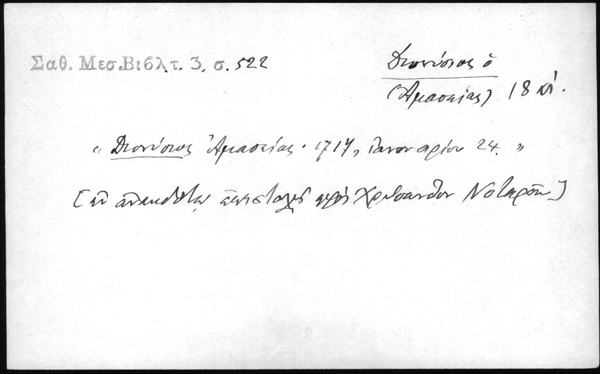 Σαθ. Μεσ.Βιβλ.τ. 3, σ. 522
Διονύσιος ὁ
(Ἀμασείας) 18 αἰ.
« Διονύσιος Ἀμασείας · 1717, Ἰανουαρίου 24. »
[ἐν ἀνεκδότῳ ἐπιστολῇ πρὸς Χρύσανθον Νοταρᾶν]